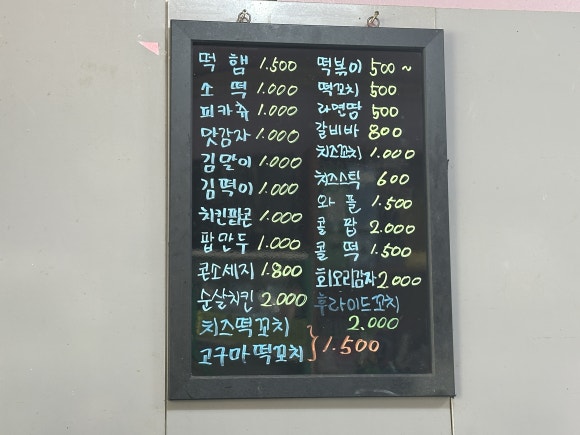 떡 햄 1.500
소 떡 1.000
피카츄 1.000
맛감자 1.000
김말이 1.000
김떡이 1.000
치킨팝콘 1.000
팝만두 1.000
콘소세지 1.800
순살치킨 2.000
치즈떡꼬치
고구마떡꼬치 } 1.500
떡볶이 500~
떡꼬치 500
라면땅 500
갈비바 800
치즈꼬치 1.000
치즈스틱 600
와플 1.500
콜팝 2.000
콜떡 1.500
회오리감자 2000
후라이드꼬치
2.000